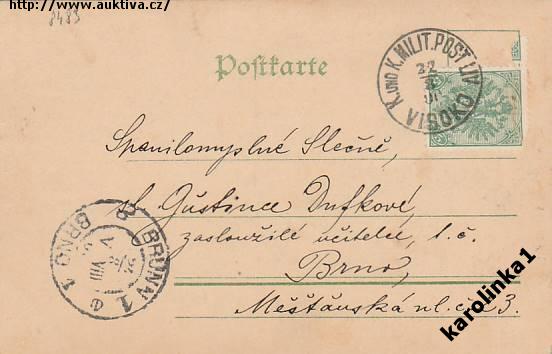 http://www.auktiva.cz/
8483
Postkarte
K. UND K. MILIT. POST LIV
22
VISOKO
Spanilomyslné Slečně,
sl. Gustince Dufkové,
zasloužilé učitelce, t. č.
Brno,
Měšťanská ul. čís 3.
BRÜNN 1
BRNO 1
VIII
karolinka1